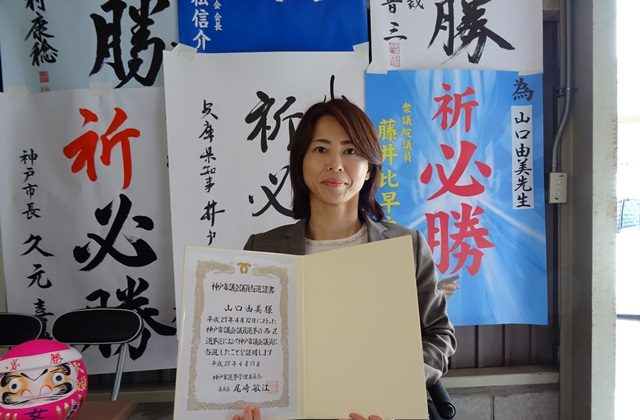 村康稔
必勝
会長
松信介
晋三
勝
祈必勝
神戸市長 久元喜
祈必
兵庫県知事 井戸
為 山口由美先生
祈必勝
衆議院議員
藤井比早
神戸市議会議員当選証書
山口由美様
平成27年4月12日に行った
神戸市議会議員選挙の西区
選挙区において神戸市議会議員に
当選したことを証明します
平成27年4月17日
神戸市選挙管理委員会
委員長 尾崎敏江
勝
女